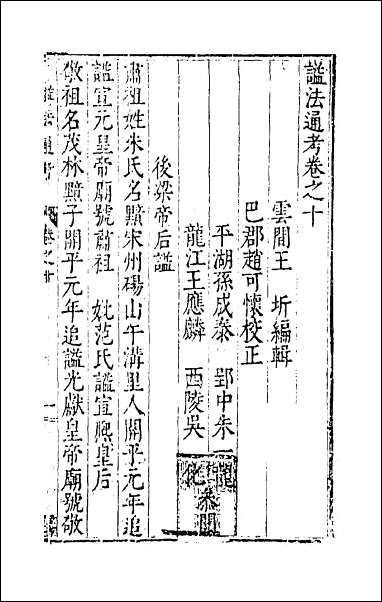 諡法通考卷之十
雲間王 圻編輯
巴郡趙可懷校正
平湖孫成泰 郢中朱一龍
龍江王應麟 西陵吳化 參閱
後梁帝后諡
肅祖姓朱氏名黯宋州碭山午溝里人開平元年追
諡宣元皇帝廟號肅祖 妣范氏諡宣僖皇后
敬祖名茂林黯子開平元年追諡光獻皇帝廟號敬
諡法通考 卷之十 一